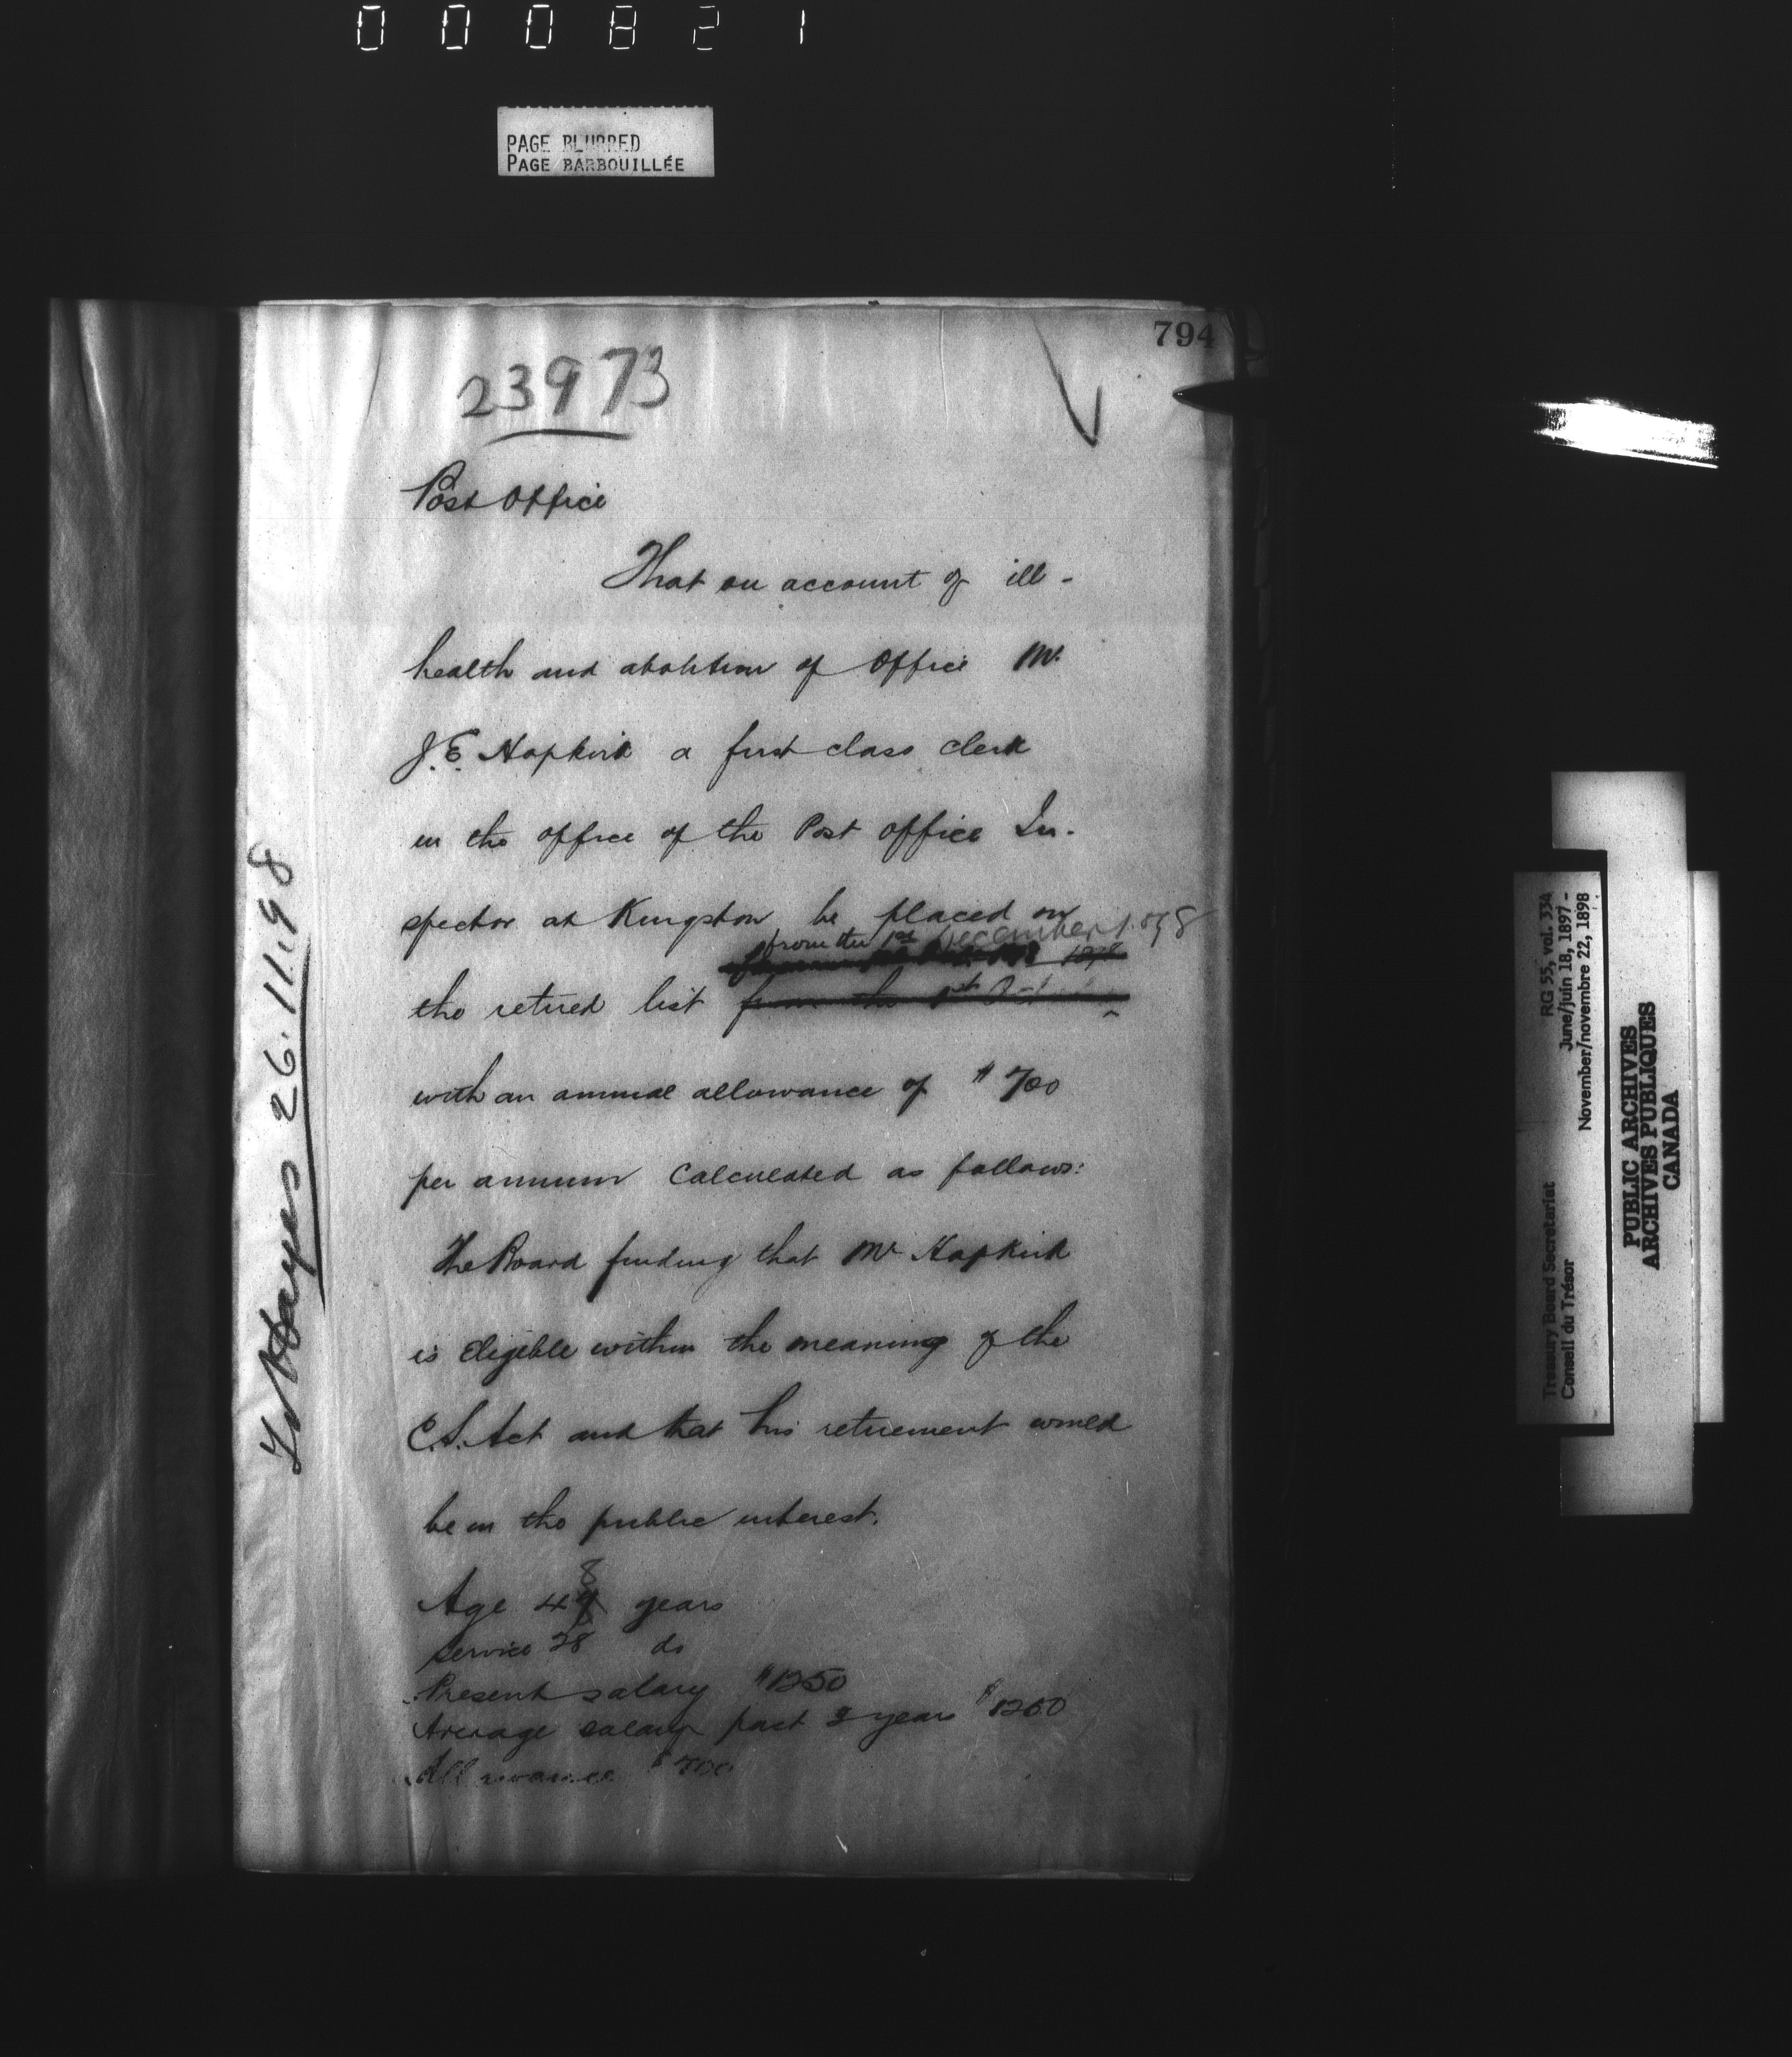 000821
PAGE BLURRED
PAGE BARBOUILLÉE
794
23973
Post Office
That on account of ill-
health and abolition of Office Mr.
J.E. Hopkirk a first class clerk
in the office of the Post Office In-
spector at Kingston be placed on
from the 1st December 1898
1898
the retired list from the 1st
with an annual allowance of $700
per annum Calculated as follows:
The Board finding that Mr Hopkirk
is Eligible within the meaning of the
C.S. Act and that his retirement would
be in the public interest.
8
Age 49 years
Service 28 do
Present salary $1250
Average salary past 3 years $1250
Allowance $700
Hayes 26.11.98
RG 55, vol. 334
June/juin 18, 1897 -
November/novembre 22, 1898
Treasury Board Secretariat
Conseil du Trésor
PUBLIC ARCHIVES
ARCHIVES PUBLIQUES
CANADA